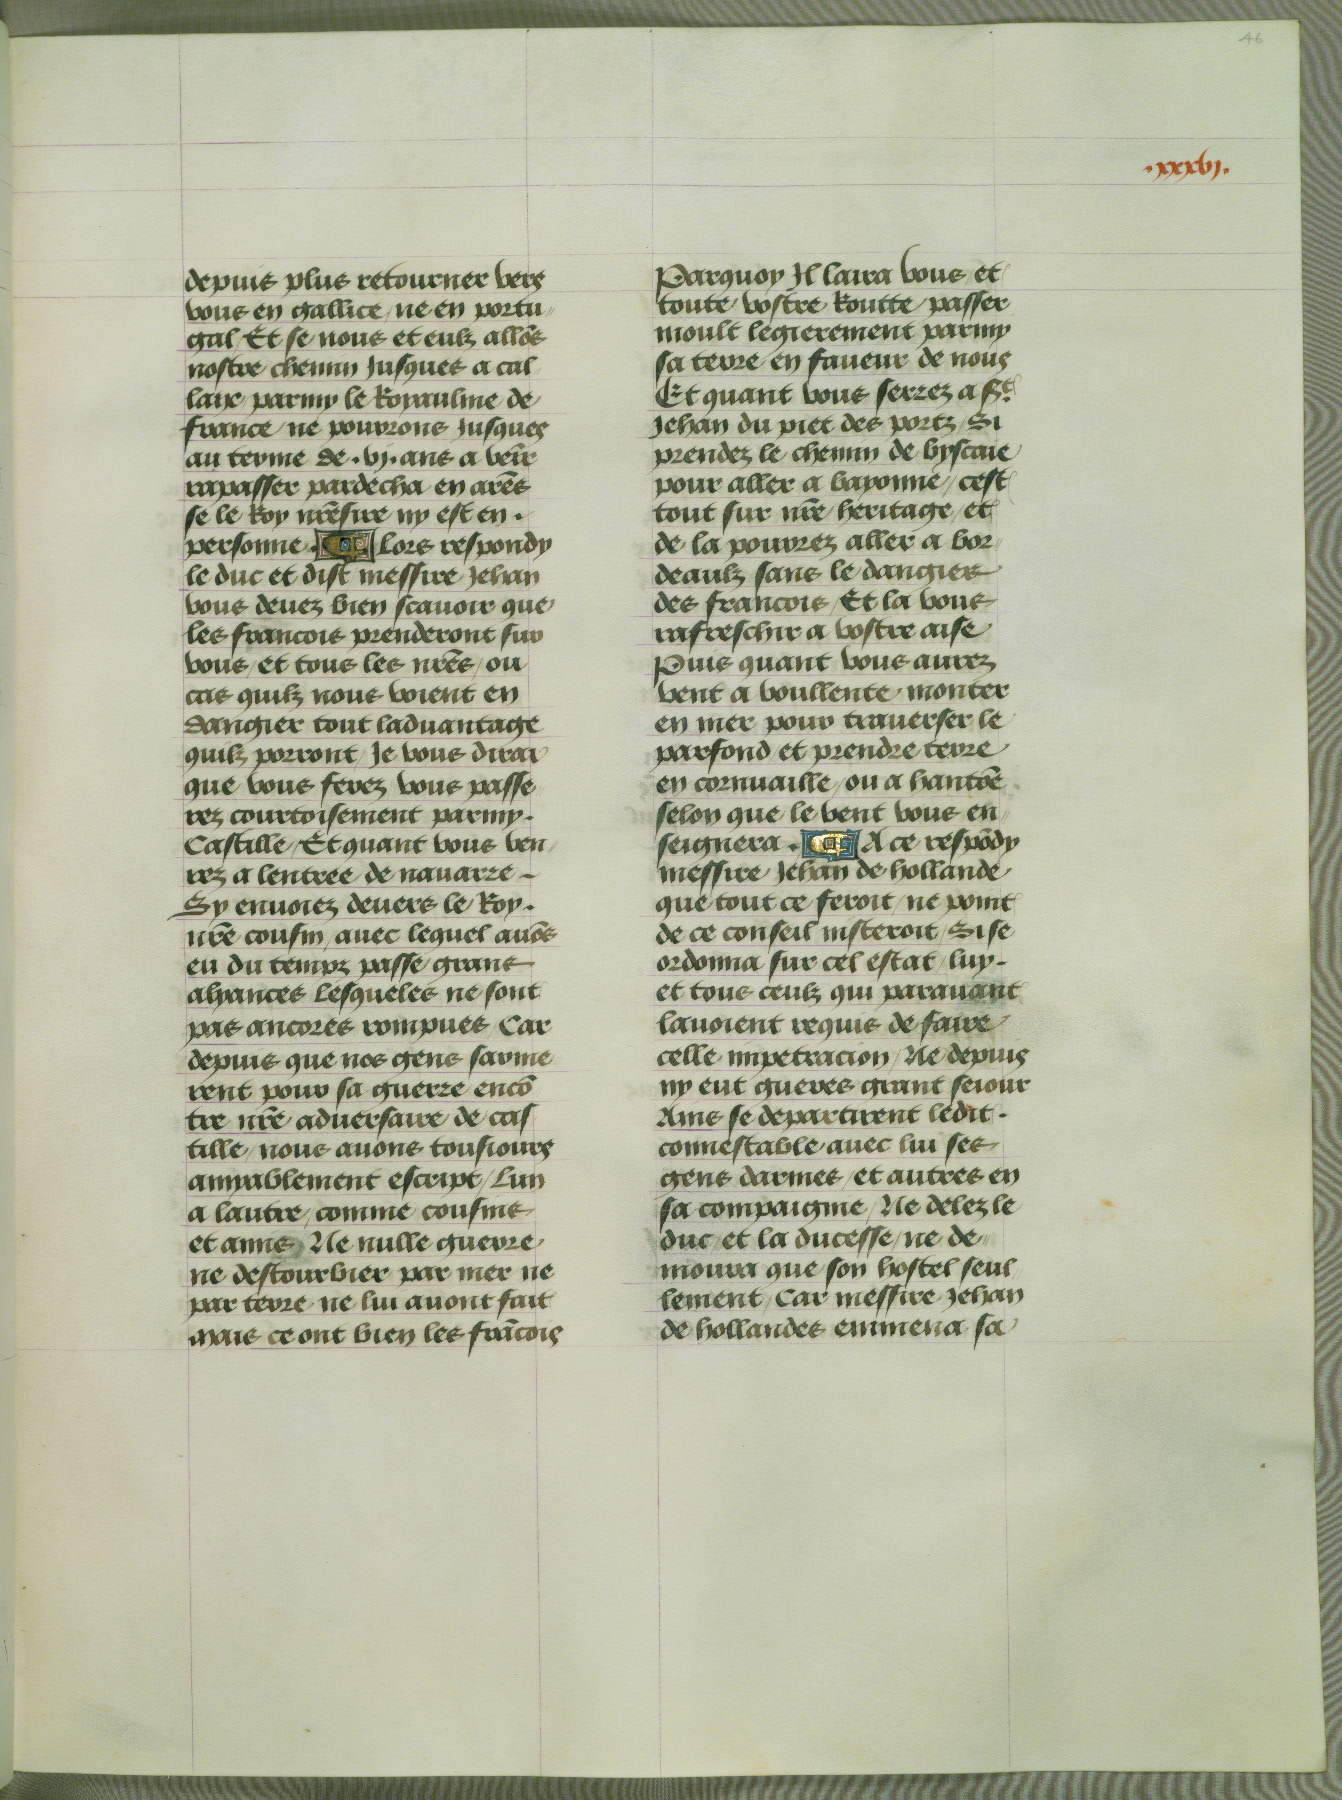 46
.xxxvj.
depuis plus retourner vers
vous en gallice / ne en portu〃
gal / Et se nous et eulz allõs
nostre chemin Jusques a cal
laix parmy le Royaulme de
france / ne pourrons Jusques
au terme de .vj. ans a venir
rapasser pardecha en arẽs
se le Roy nrẽ sire ny est en .
personne . Lors respondy
le duc et dist messire Jehan
vous deuez bien scauoir que
les francois prenderont sur
vous / et tous les nrẽs / ou
cas quilz nous voient en
dangier tout laduantage
quilz porront / Je vous diray
que vous ferez vous passe
rez courtoisement parmy .
Castille / Et quant vous ven〃
rez a lentree de nauarre –
Sy enuoiez deuers le Roy .
nrẽ cousin / auec lequel auõs
eu du temps passe grans
alyances Lesqueles ne sont
pas ancores rompues / Car
depuis que nos gens sarme
rent pour sa guerre encõ
tre nrẽ aduersaire de cas
tille / nous auons tousiours
amyablement escript / Lun
a lautre / comme cousins
et amis / Ne nulle guerre
ne destourbier par mer ne
par terre ne lui auont fait
mais ce ont bien les frãcois
Parquoy Il laira vous et
toute vostre Routte / passer
moult legierement parmy
sa terre en faueur de nous
Et quant vous serrez a St.
Jehan du piet des portz / Si
prendez le chemin de byscaie
pour aller a bayonne / cest
tout sur nrẽ heritage / et
de la pourrez aller a bor〃
deaulz sans le dangier
des francois / Et la vous
rafreschir a vostre aise
Puis quant vous aurez
vent a voullente / monter
en mer pour trauerser le
parfond et prendre terre
en cornuaille / ou a hantõe
selon que le vent vous en〃
seignera . A ce respõdy
messire Jehan de hollande
que tout ce feroit / ne point
de ce conseil nisteroit / Si se
ordonna sur cel estat / luy .
et tous ceulz qui parauant
lauoient requis de faire
celle impetracion / Ne depuis
ny eut gueres grant seiour
Ains se departirent ledit .
connestable auec lui ses
gens darmes / et autres en
sa compaignie / Ne delez le
duc / et la ducesse / ne de〃
moura que son hostel seul
lement / Car messire Jehan
de hollandes emmena sa